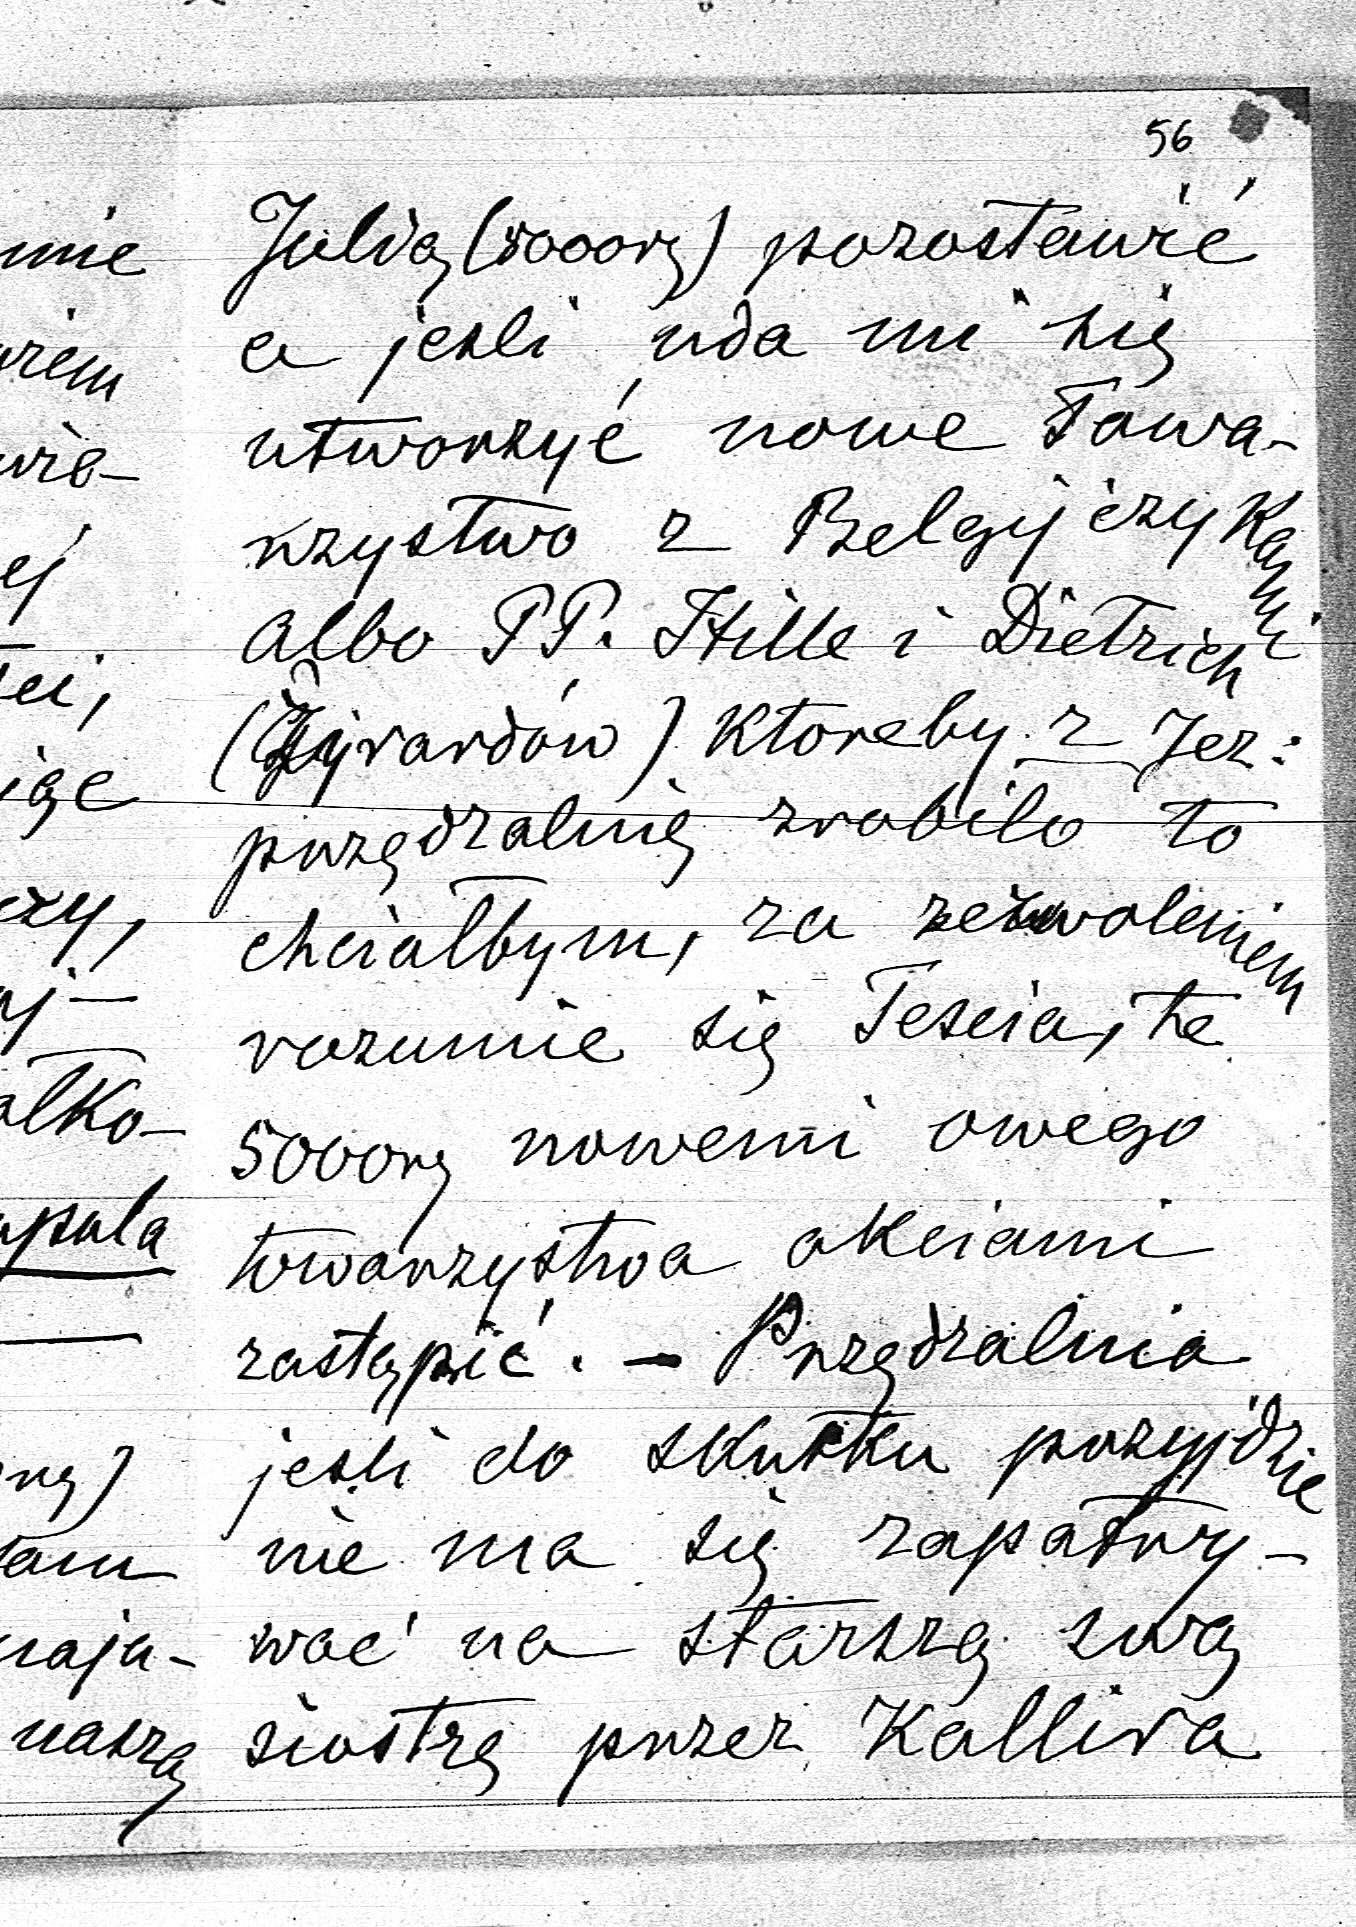 56
Julią (5000 rs) pozostawić
a jeśli uda mi się
utworzyć nowe Towa-
rzystwo z Belgijczykami
albo PP. Hille i Dietrich
(Żyrardów) któreby z Jez:
przędzalnię zrobiło to
chciałbym, za zezwoleniem
rozumie się Teścia, te
5000 rs nowemi owego
towarzystwa akciami
zastąpić. – Przędzalnia
jeśli do skutku przyjdzie
nie ma się zapatry-
wać na starszą swą
siostrę przez Kallira
nie
ej
alko-
naszą